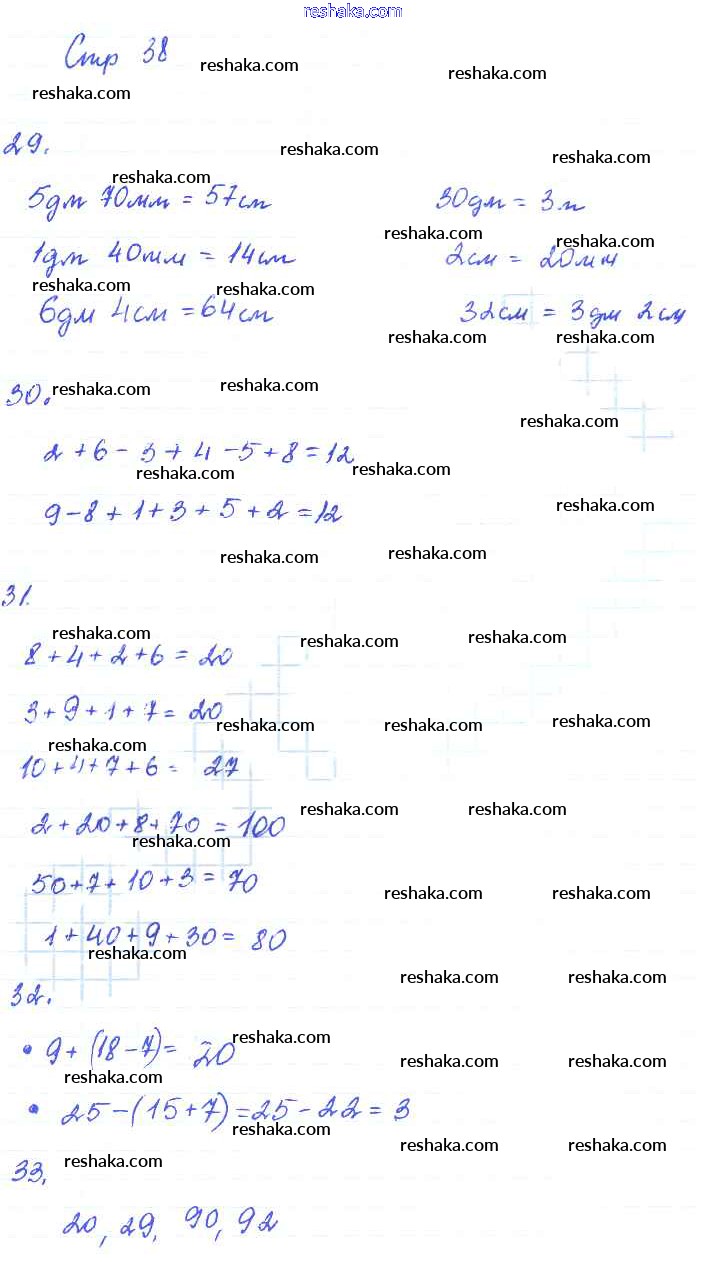 reshaka.com
Стр 38 reshaka.com reshaka.com
reshaka.com
29. reshaka.com reshaka.com
reshaka.com
5дм 70мм = 57см 30дм = 3м
reshaka.com reshaka.com
1дм 40мм = 14см 2см = 20мм
reshaka.com reshaka.com
6дм 4см = 64см 32см = 3дм 2см
reshaka.com reshaka.com
30. reshaka.com reshaka.com
reshaka.com
2+6-3+4-5+8=12
reshaka.com reshaka.com
9-8+1+3+5+2=12 reshaka.com
reshaka.com reshaka.com
31.
reshaka.com reshaka.com reshaka.com
8+4+2+6=20
3+9+1+7=20
reshaka.com reshaka.com reshaka.com
reshaka.com
10+4+7+6= 27
reshaka.com reshaka.com
2+20+8+70=100
reshaka.com
50+7+10+3=70 reshaka.com reshaka.com
1+40+9+30= 80
reshaka.com
32. reshaka.com reshaka.com
reshaka.com
• 9+(18-7)= 20
reshaka.com reshaka.com reshaka.com
• 25-(15+7)=25-22=3
reshaka.com reshaka.com reshaka.com
33, reshaka.com
20, 29, 90, 92